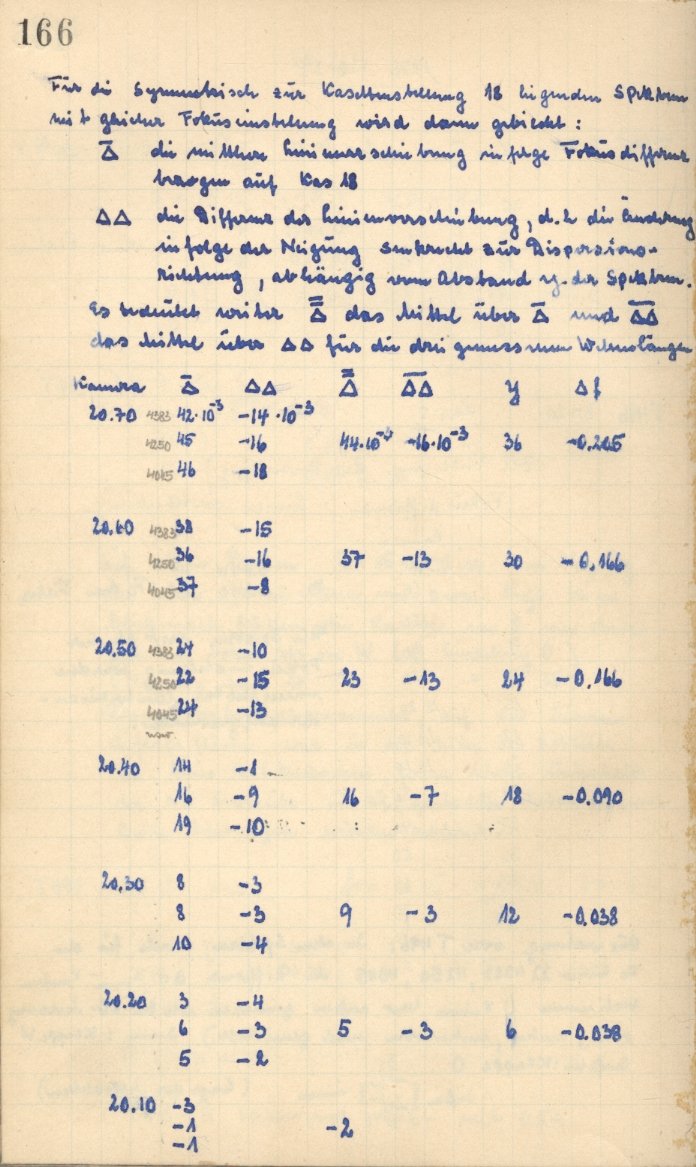 166
Für die Symmetrisch zur Kasettenstellung 18 liegenden Spektren
mit gleicher Fokuseinstellung wird dann gebildet:
Δ̅ die mittlere Linienverschiebung infolge Fokusdifferenz
bezogen auf Kas 18
ΔΔ die Differenz der Linienverschiebung, d.h. die Änderung
infolge der Neigung senkrecht zur Dispersions-
richtung, abhängig vom Abstand y der Spektren.
Es bedeutet weiter Δ̿ das Mittel über Δ̅ und Δ̅Δ̅
das Mittel über ΔΔ für die drei gemessenen Wellenlängen
Kamera Δ̅ ΔΔ Δ̿ Δ̅Δ̅ y Δf
20.70 4383 42·10⁻³ -14·10⁻³
4250 45 -16 44·10⁻³ -16·10⁻³ 36 -0.205
4045 46 -18
20.60 4383 38 -15
4250 36 -16 37 -13 30 -0.166
4045 37 -8
20.50 4383 24 -10
4250 22 -15 23 -13 24 -0.166
4045 24 -13
usw.
20.40 14 -1
16 -9 16 -7 18 -0.090
19 -10
20.30 8 -3
8 -3 9 -3 12 -0.038
10 -4
20.20 3 -4
6 -3 5 -3 6 -0.038
5 -2
20.10 -3
-1 -2
-1